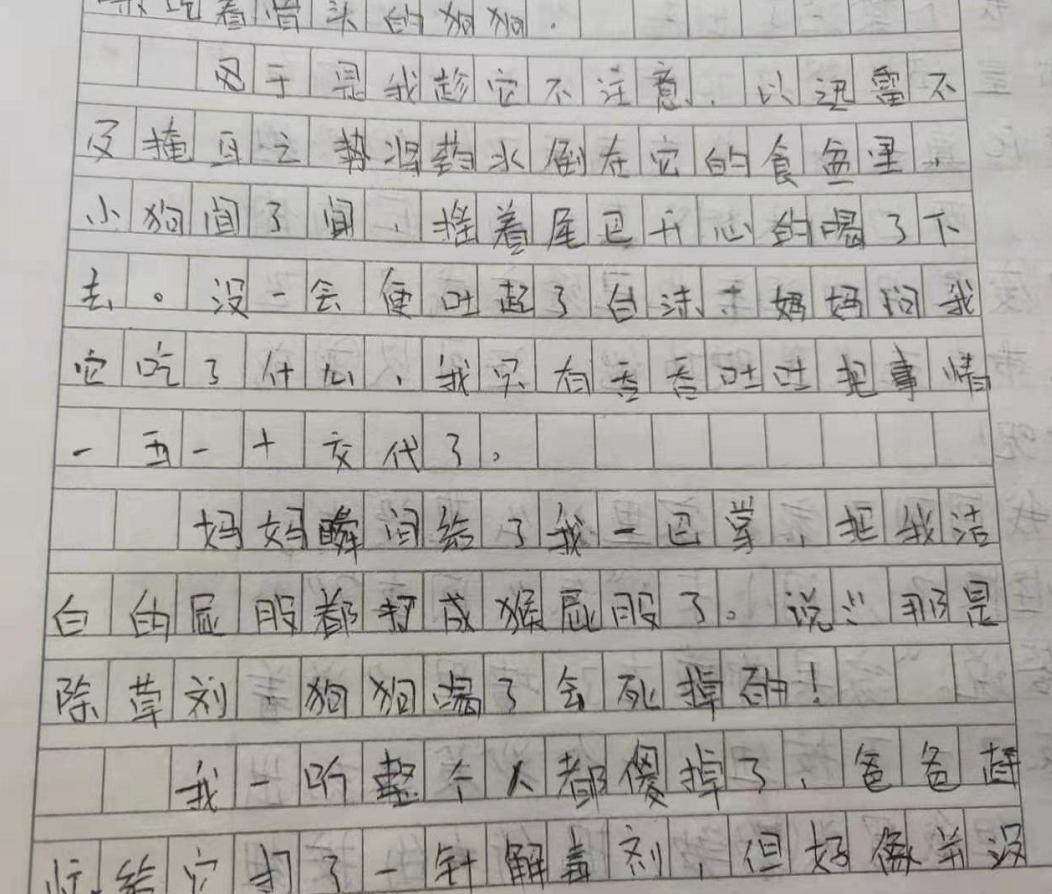 吃着骨头的狗狗.
于是我趁它不注意,以迅雷不
及掩耳之势将药水倒在它的食盆里,
小狗闻了闻,摇着尾巴开心的喝了下
去。没一会便吐起了白沫,妈妈问我
它吃了什么,我只有吞吞吐吐把事情
一五一十交代了。
妈妈瞬间给了我一巴掌,把我洁
白的屁股都打成猴屁股了。说:“那是
除草剂,狗狗喝了会死掉的!
我一听整个人都傻掉了,爸爸赶
忙给它打了一针解毒剂,但好像并没